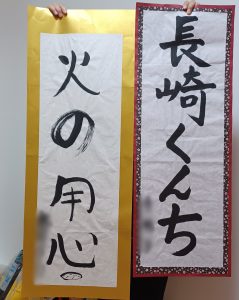 長崎くんち
火の用心